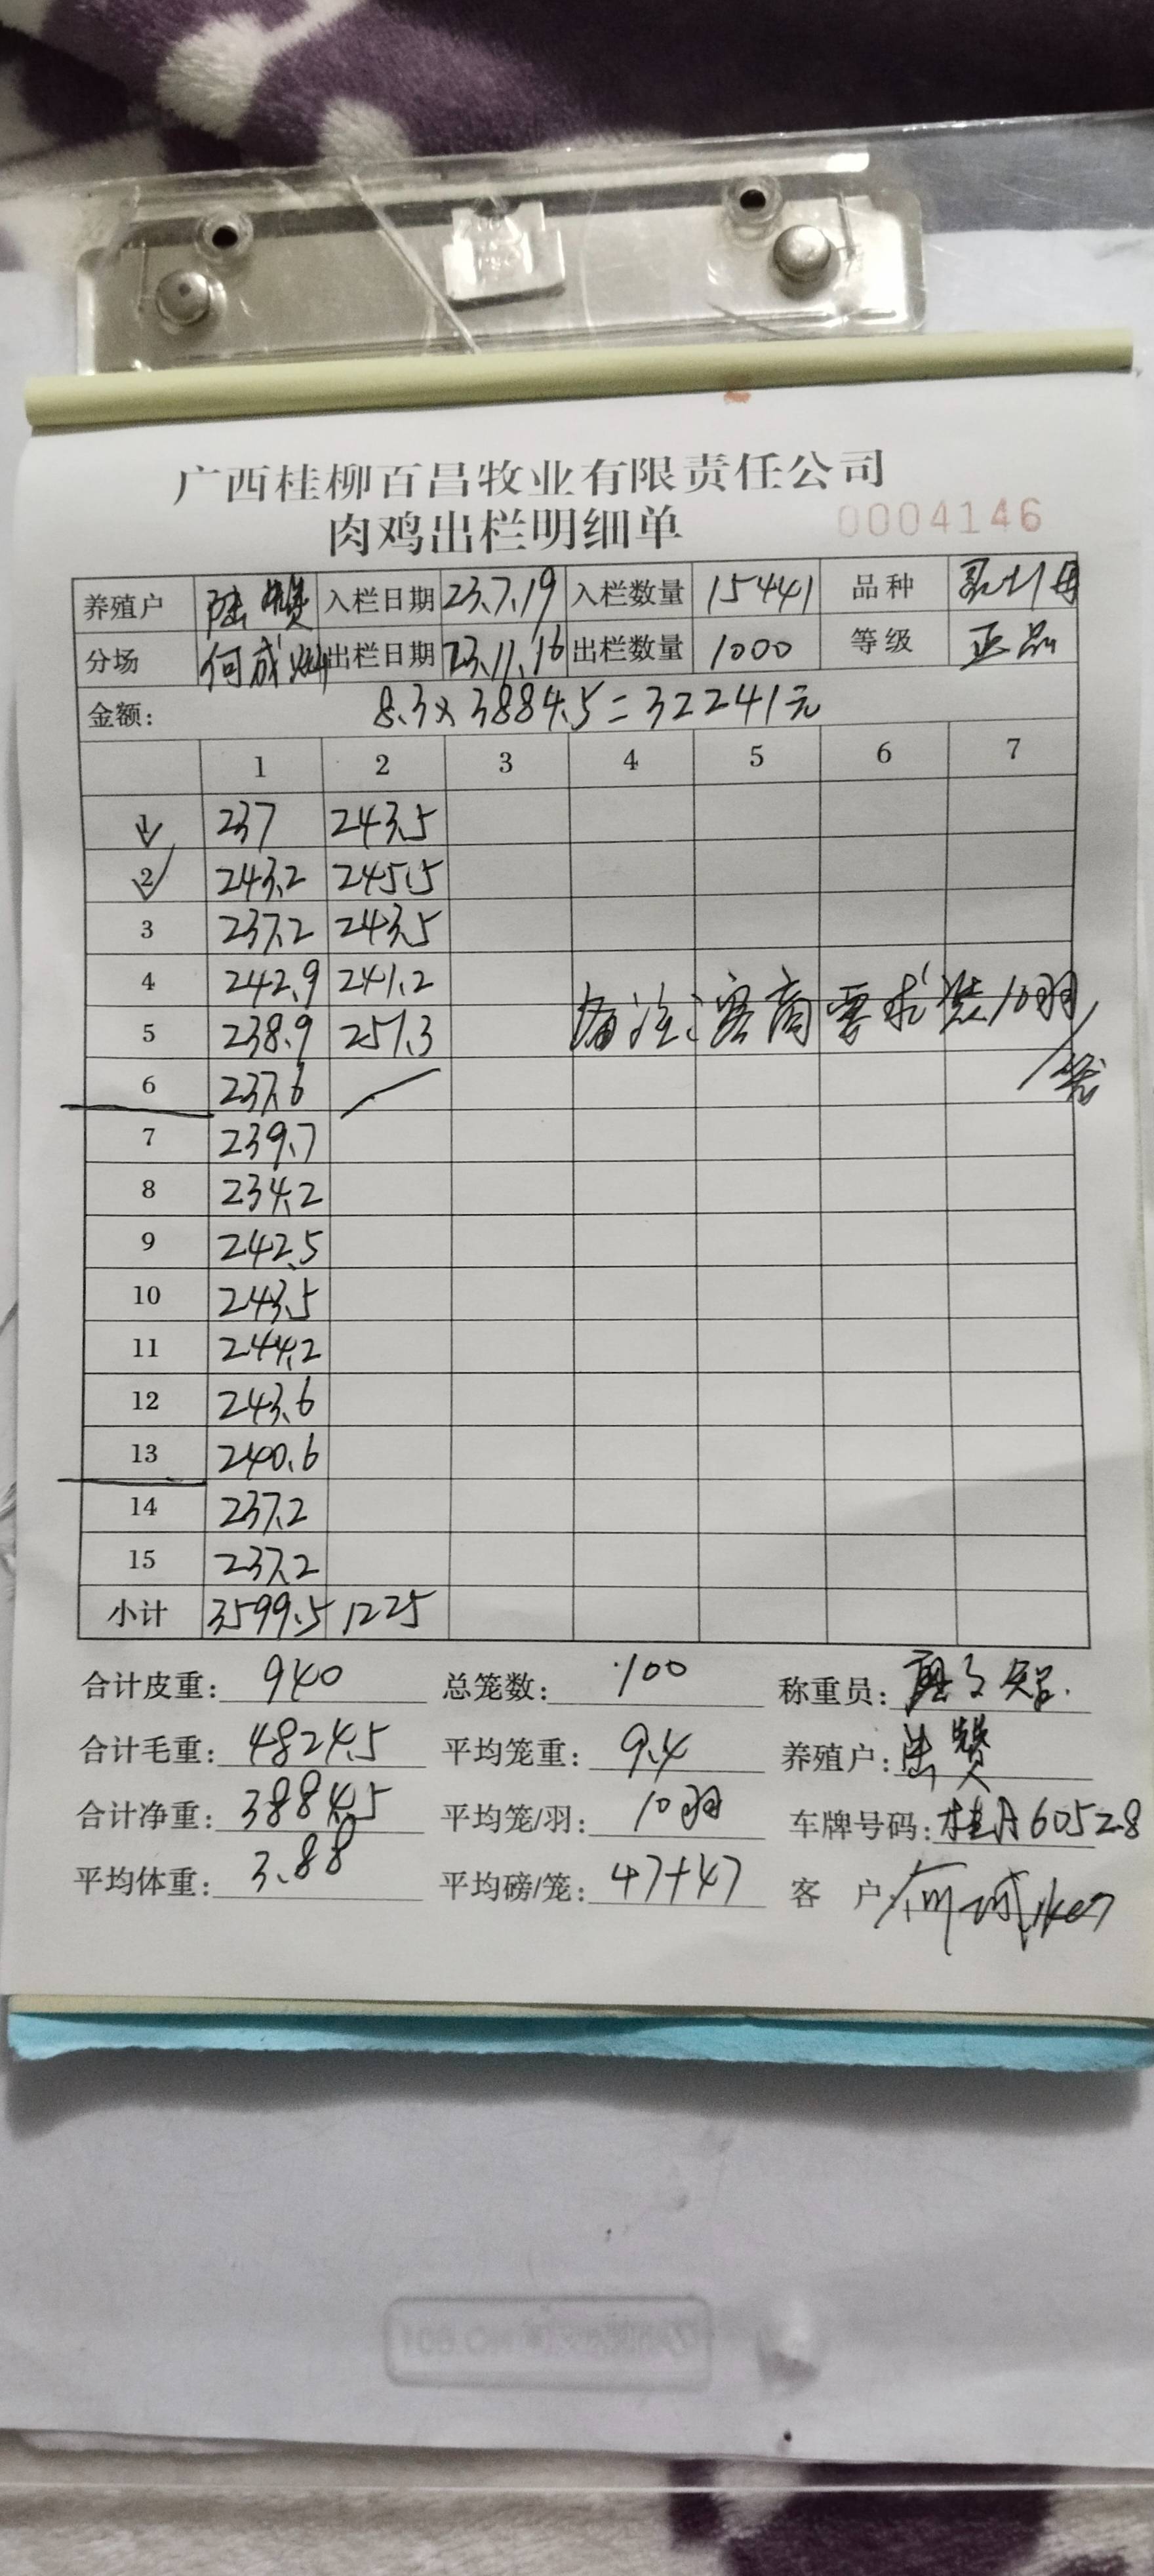 广西桂柳百昌牧业有限责任公司
肉鸡出栏明细单 0004146
养殖户 陆赞 入栏日期 23.7.19 入栏数量 15441 品种
分场 何成 出栏日期 23.11.16 出栏数量 1000 等级 正品
金额: 8.3×3884.5=32241元
1 2 3 4 5 6 7
1 237 243.5
2 243.2 245.5
3 237.2 243.5
4 242.9 241.2
5 238.9 251.3 备注:客商要求装10羽
6 237.6 /笼
7 239.7
8 234.2
9 242.5
10 243.5
11 244.2
12 243.6
13 240.6
14 237.2
15 237.2
小计 3599.5 1225
合计皮重: 940 总笼数: 100 称重员:
合计毛重: 4824.5 平均笼重: 9.4 养殖户: 陆赞
合计净重: 3884.5 平均笼/羽: 10羽 车牌号码: 桂A60528
平均体重: 3.88 平均磅/笼: 47+47 客户: 何成